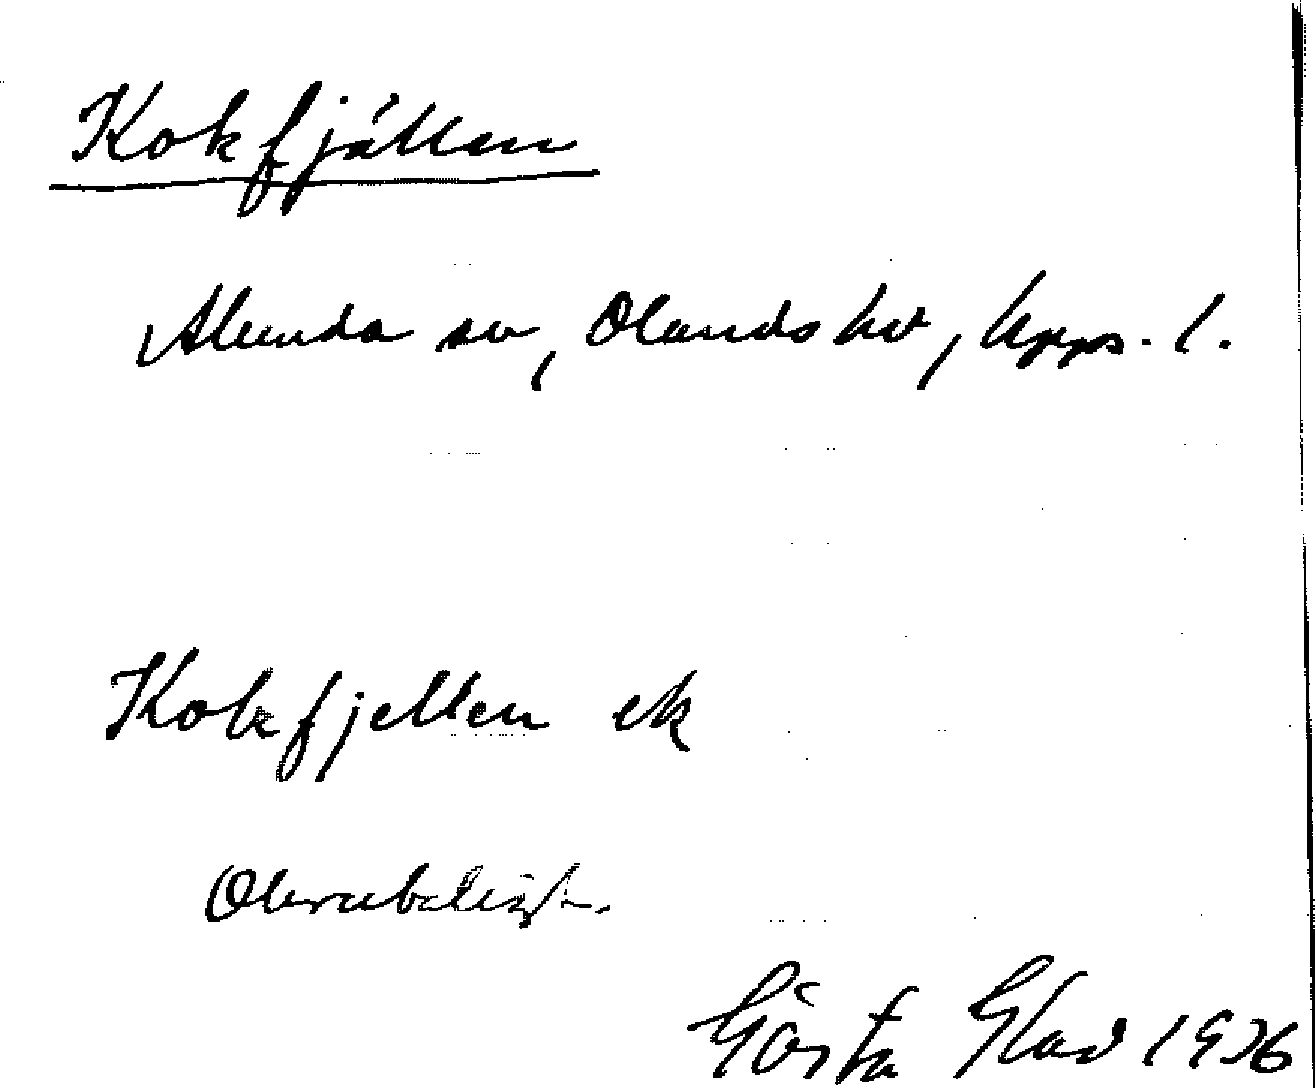 Kokfjällen
Alunda sn, Olands hd, Upps. l.
Kokfjellen ek
Obrukligt.
Gösta Glad 1936